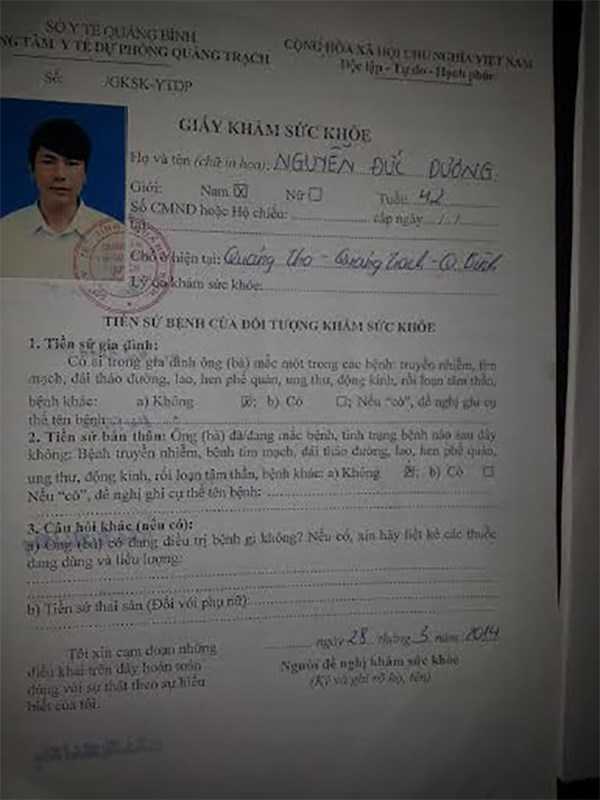 SỞ Y TẾ QUẢNG BÌNH
NG TÂM Y TẾ DỰ PHÒNG QUẢNG TRẠCH
CỘNG HÒA XÃ HỘI CHỦ NGHĨA VIỆT NAM
Độc lập - Tự do - Hạnh phúc
Số: /GKSK-YTDP
GIẤY KHÁM SỨC KHỎE
Họ và tên (chữ in hoa): NGUYỄN ĐỨC DƯƠNG
Giới: Nam ☒ Nữ ☐ Tuổi: 42
Số CMND hoặc Hộ chiếu: .................... cấp ngày ../../
tại
Chỗ ở hiện tại: Quảng Thọ - Quảng Trạch - Q. Bình
Lý do khám sức khỏe:
TIỀN SỬ BỆNH CỦA ĐỐI TƯỢNG KHÁM SỨC KHỎE
1. Tiền sử gia đình:
Có ai trong gia đình ông (bà) mắc một trong các bệnh: truyền nhiễm, tim
mạch, đái tháo đường, lao, hen phế quản, ung thư, động kinh, rối loạn tâm thần,
bệnh khác: a) Không ☒; b) Có ☐; Nếu "có", đề nghị ghi cụ
thể tên bệnh:
2. Tiền sử bản thân: Ông (bà) đã/đang mắc bệnh, tình trạng bệnh nào sau đây
không: Bệnh truyền nhiễm, bệnh tim mạch, đái tháo đường, lao, hen phế quản,
ung thư, động kinh, rối loạn tâm thần, bệnh khác: a) Không ☒; b) Có ☐
Nếu "có", đề nghị ghi cụ thể tên bệnh:
3. Câu hỏi khác (nếu có):
a) Ông (bà) có đang điều trị bệnh gì không? Nếu có, xin hãy liệt kê các thuốc
đang dùng và liều lượng:
b) Tiền sử thai sản (Đối với phụ nữ):
Tôi xin cam đoan những
điều khai trên đây hoàn toàn
đúng với sự thật theo sự hiểu
biết của tôi.
........ ngày 28 tháng 3 năm 2014
Người đề nghị khám sức khỏe
(Ký và ghi rõ họ, tên)